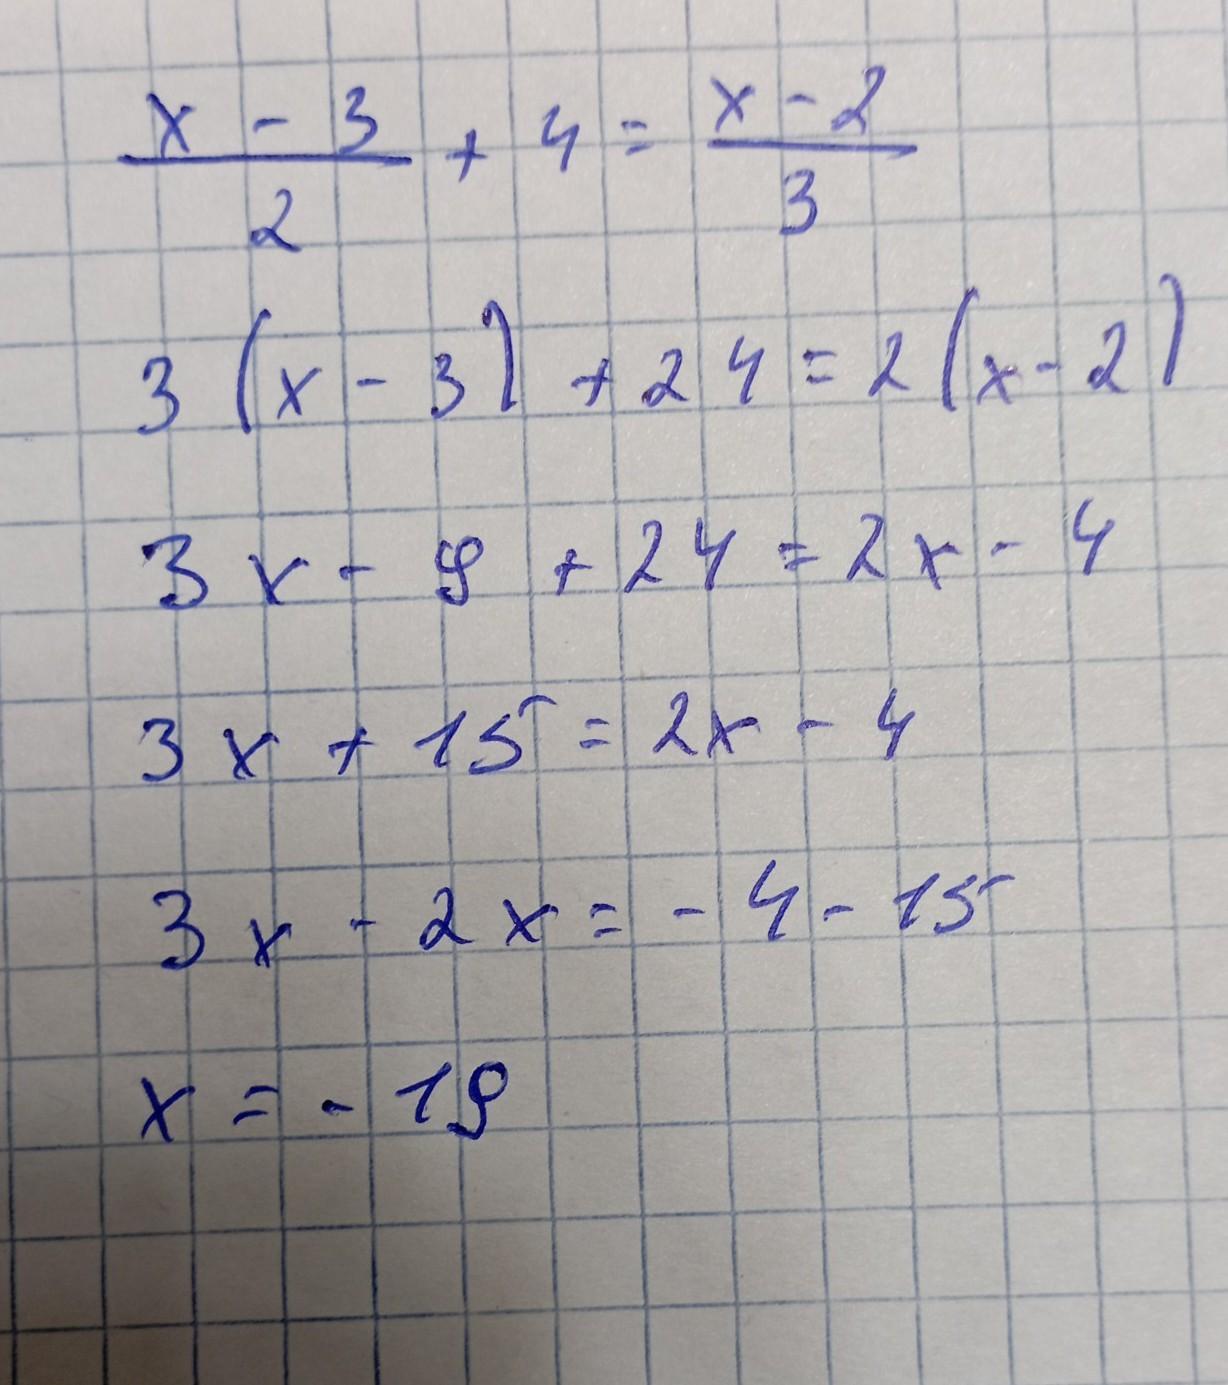 x - 3 / 2 + 4 = x - 2 / 3
3 (x - 3) + 24 = 2 (x - 2)
3x - 9 + 24 = 2x - 4
3x + 15 = 2x - 4
3x - 2x = - 4 - 15
x = - 19